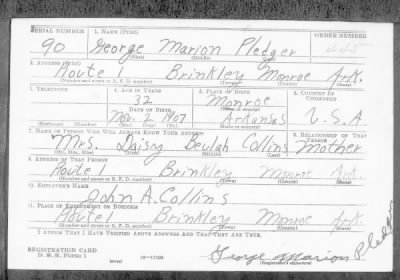 SERIAL NUMBER 1. NAME (Print) ORDER NUMBER
90 George Marion Pledger
(First) (Middle) (Last)
2. ADDRESS (Print)
Route 1 Brinkley Monroe Ark.
(Number and street or R. F. D. number) (Town) (County) (State)
3. TELEPHONE 4. AGE IN YEARS 5. PLACE OF BIRTH 6. COUNTRY OF CITIZENSHIP
32 Monroe
DATE OF BIRTH (Town or county)
Nov. 2 1907 Arkansas U.S.A.
(Exchange) (Number) (Mo.) (Day) (Yr.) (State or country)
7. NAME OF PERSON WHO WILL ALWAYS KNOW YOUR ADDRESS 8. RELATIONSHIP OF THAT PERSON
Mrs. Daisy Beulah Collins Mother
(Mr., Mrs., Miss) (First) (Middle) (Last)
9. ADDRESS OF THAT PERSON
Route 1 Brinkley Monroe Ark.
(Number and street or R. F. D. number) (Town) (County) (State)
10. EMPLOYER'S NAME
John A. Collins
11. PLACE OF EMPLOYMENT OR BUSINESS
Route 1 Brinkley Monroe Ark
(Number and street or R. F. D. number) (Town) (County) (State)
I AFFIRM THAT I HAVE VERIFIED ABOVE ANSWERS AND THAT THEY ARE TRUE.
REGISTRATION CARD
D. S. S. FORM 1 (over) George Marion Pledger
(Registrant's signature)